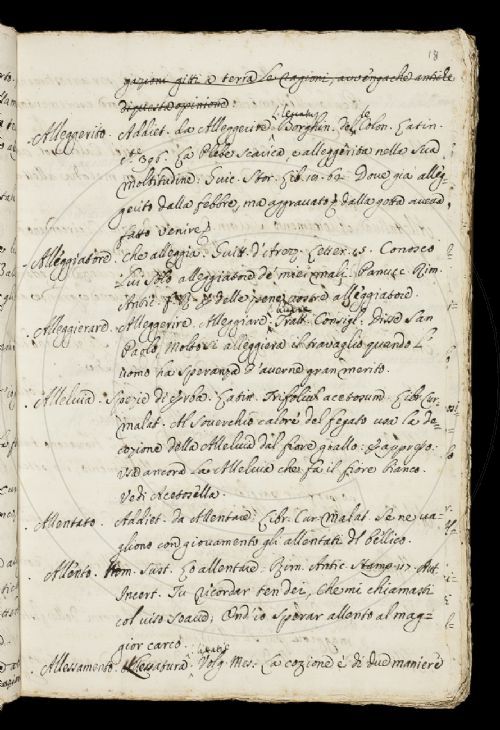 18
gazioni giti a terra le ragioni, avvengachè antiche
di queste opinione:
Alleggerito. Addiet. da Alleggerire. Borghin. Col. Latin.
396. La Plebe scarica, e alleggerita nella sua
moltitudine. Guic. Stor. Lib. 10. 62. Dove già alleg-
gerito dalla febbre, ma aggravato dalla gotta aveva
fatto venire
Alleggiatore. Che alleggia. Guitt. d'Arezz. Letter. 15. Conosco
Lui solo alleggiatore de' miei mali. Panucc. Rim.
Antic. delle pene nostre alleggiatore.
Alleggierare. Alleggerire. Alleggiare. Tratt. Consigl. Disse San
Paolo, Molto si alleggiera il travaglio quando l'
uomo ha speranza d'averne gran merito.
Alleluia. Spezie di Erba. Latin. Trifolium acetosum. Libr. Cur.
malat. Al soverchio calore del fegato usa la de-
cozione della Alleluia dal fiore giallo: E appresso:
Usa ancora la Alleluia che fa il fiore bianco.
Vedi Acetosella.
Allentato. Addiet. da Allentare. Libr. Cur. Malat. Se ne va-
gliono con giovamento gli allentati di bellico.
Allento. Nom. Sust. Lo allentare. Rim. Antic. Stamp. 117. Aut.
Incert. Tu ricordar ten dei, che mi chiamasti
col viso soave, Ond'io sperar allento al mag-
gior carco.
Allessamento. Allessatura. Volg. Mes. La cozione è di due maniere